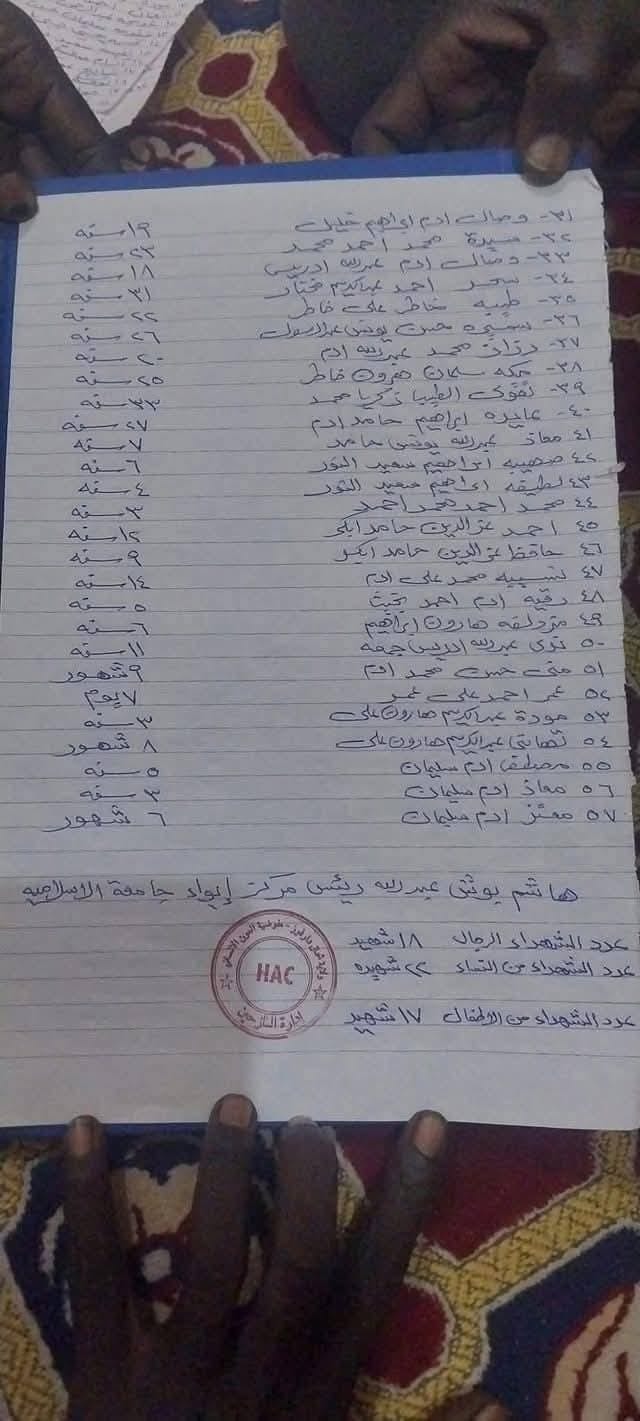 ٣١- وصال ادم ابراهيم خليل ١٩ سنه
٣٢- سيدة محمد احمد محمد ٢٣ سنه
٣٣- وصال ادم عبدالله ادريس ١٨ سنه
٣٤- سعد احمد عبدالكريم مختار ٣١ سنه
٣٥- طيبه خاطر علي خاطر ٢٢ سنه
٣٦- حسن يونس عبدالرسول ٢٦ سنه
٣٧- رزان محمد عبدالله ادم ٢٠ سنه
٣٨- مكه سلمان هرون خاطر ٢٥ سنه
٣٩- تقوى الطيب زكريا محمد ٣٣ سنه
٤٠- عايده ابراهيم حامد ادم ٢٧ سنه
٤١ معاذ عبدالله يونس حامد ٧ سنه
٤٢ صهيبه ابراهيم سعيد النور ٦ سنه
٤٣ لطيفه ابراهيم سعيد النور ٤ سنه
٤٤ محمد احمد محمد احمد ٣ سنه
٤٥ احمد عزالدين حامد ابكر ١٢ سنه
٤٦ حافظ عزالدين حامد ابكر ٩ سنه
٤٧ نسيبه محمد علي ادم ١٤ سنه
٤٨ رقيه ادم احمد بخيت ٥ سنه
٤٩ مزدلفه هارون ابراهيم ٦ سنه
٥٠ عبدالله ادريس جمعه ١١ سنه
٥١ منى حسن محمد ادم ٩ شهور
٥٢ عمر احمد علي عمر ٧ يوم
٥٣ مودة عبدالكريم هارون علي ٣ سنه
٥٤ تهاني عبدالكريم هارون علي ٨ شهور
٥٥ مصطفى ادم سليمان ٥ سنه
٥٦ معاذ ادم سليمان ٣ سنه
٥٧ معتز ادم سليمان ٦ شهور
هاشم يونس عبدالله رئيس مركز إيواء جامعة الاسلاميه
عدد الشهداء الرجال ١٨ شهيد
عدد الشهداء من النساء ٢٢ شهيده
عدد الشهداء من الاطفال ١٧ شهيد
ولاية شمال دارفور - مفوضية العون الإنساني
HAC
إدارة النازحين